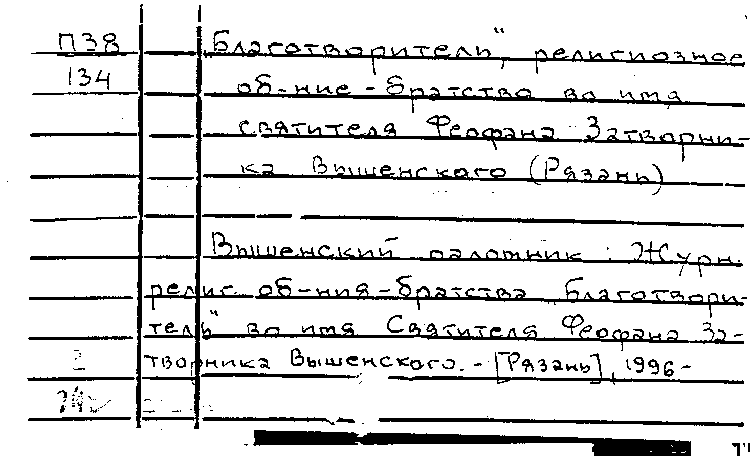 П38 „Благотворитель", религиозное
134 об-ние-братство во имя
святителя Феофана Затворни-
ка Вышенского (Рязань)
Вышенский паломник : Журн.
религ. об-ния-братства „Благотвори-
тель" во имя Святителя Феофана За-
творника Вышенского. - [Рязань], 1996 -